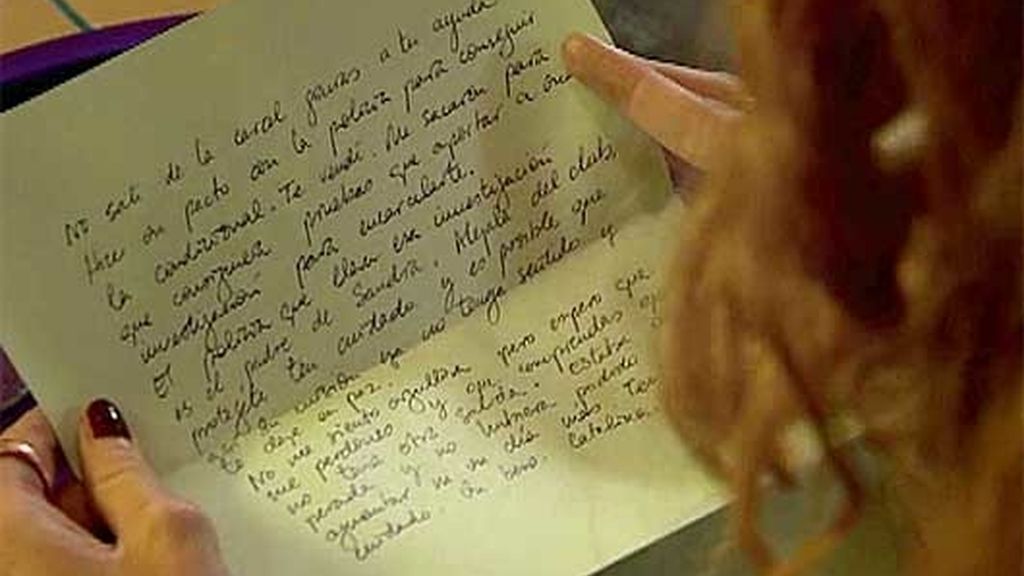 No salí de la cárcel gracias a tu ayuda
Hice un pacto con la policía para conseguir
la condicional. Te vendí. Me sacaron para
que consiguiera pruebas que aportar a una
investigación para encarcelarte.
El policía que lleva esa investigación
es el padre de Sandra. Alejala del club,
protegete ten cuidado y es posible que
ya no tenga sentido y
te deje en paz.
No me siento orgullosa pero espero que
me perdones y que comprendas que
no tenía otra salida. Estaba
perdida y no hubiera podido
aguantar ni un día más. Ten
cuidado. Un beso. Catalina.